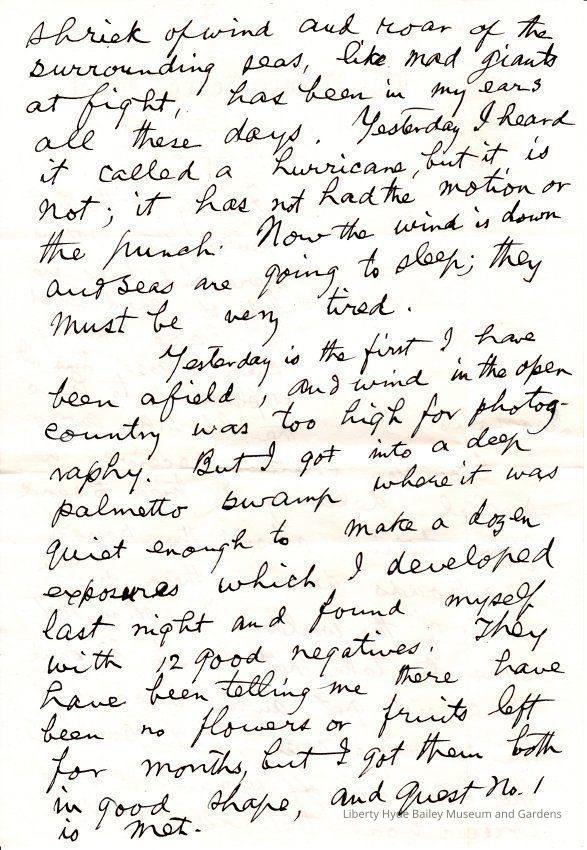 shriek of wind and roar of the
surrounding seas, like mad giants
at fight, has been in my ears
all these days. Yesterday I heard
it called a hurricane, but it is
not; it has not had the motion or
the punch. Now the wind is down
and seas are going to sleep; they
must be very tired.
Yesterday is the first I have
been afield, and wind in the open
country was too high for photog-
raphy. But I got into a deep
palmetto swamp where it was
quiet enough to make a dozen
exposures which I developed
last night and found myself
with 12 good negatives. They
have been telling me there have
been no flowers or fruits left
for months, but I got them both
in good shape, and Quest No. 1
is met.
Liberty Hyde Bailey Museum and Gardens